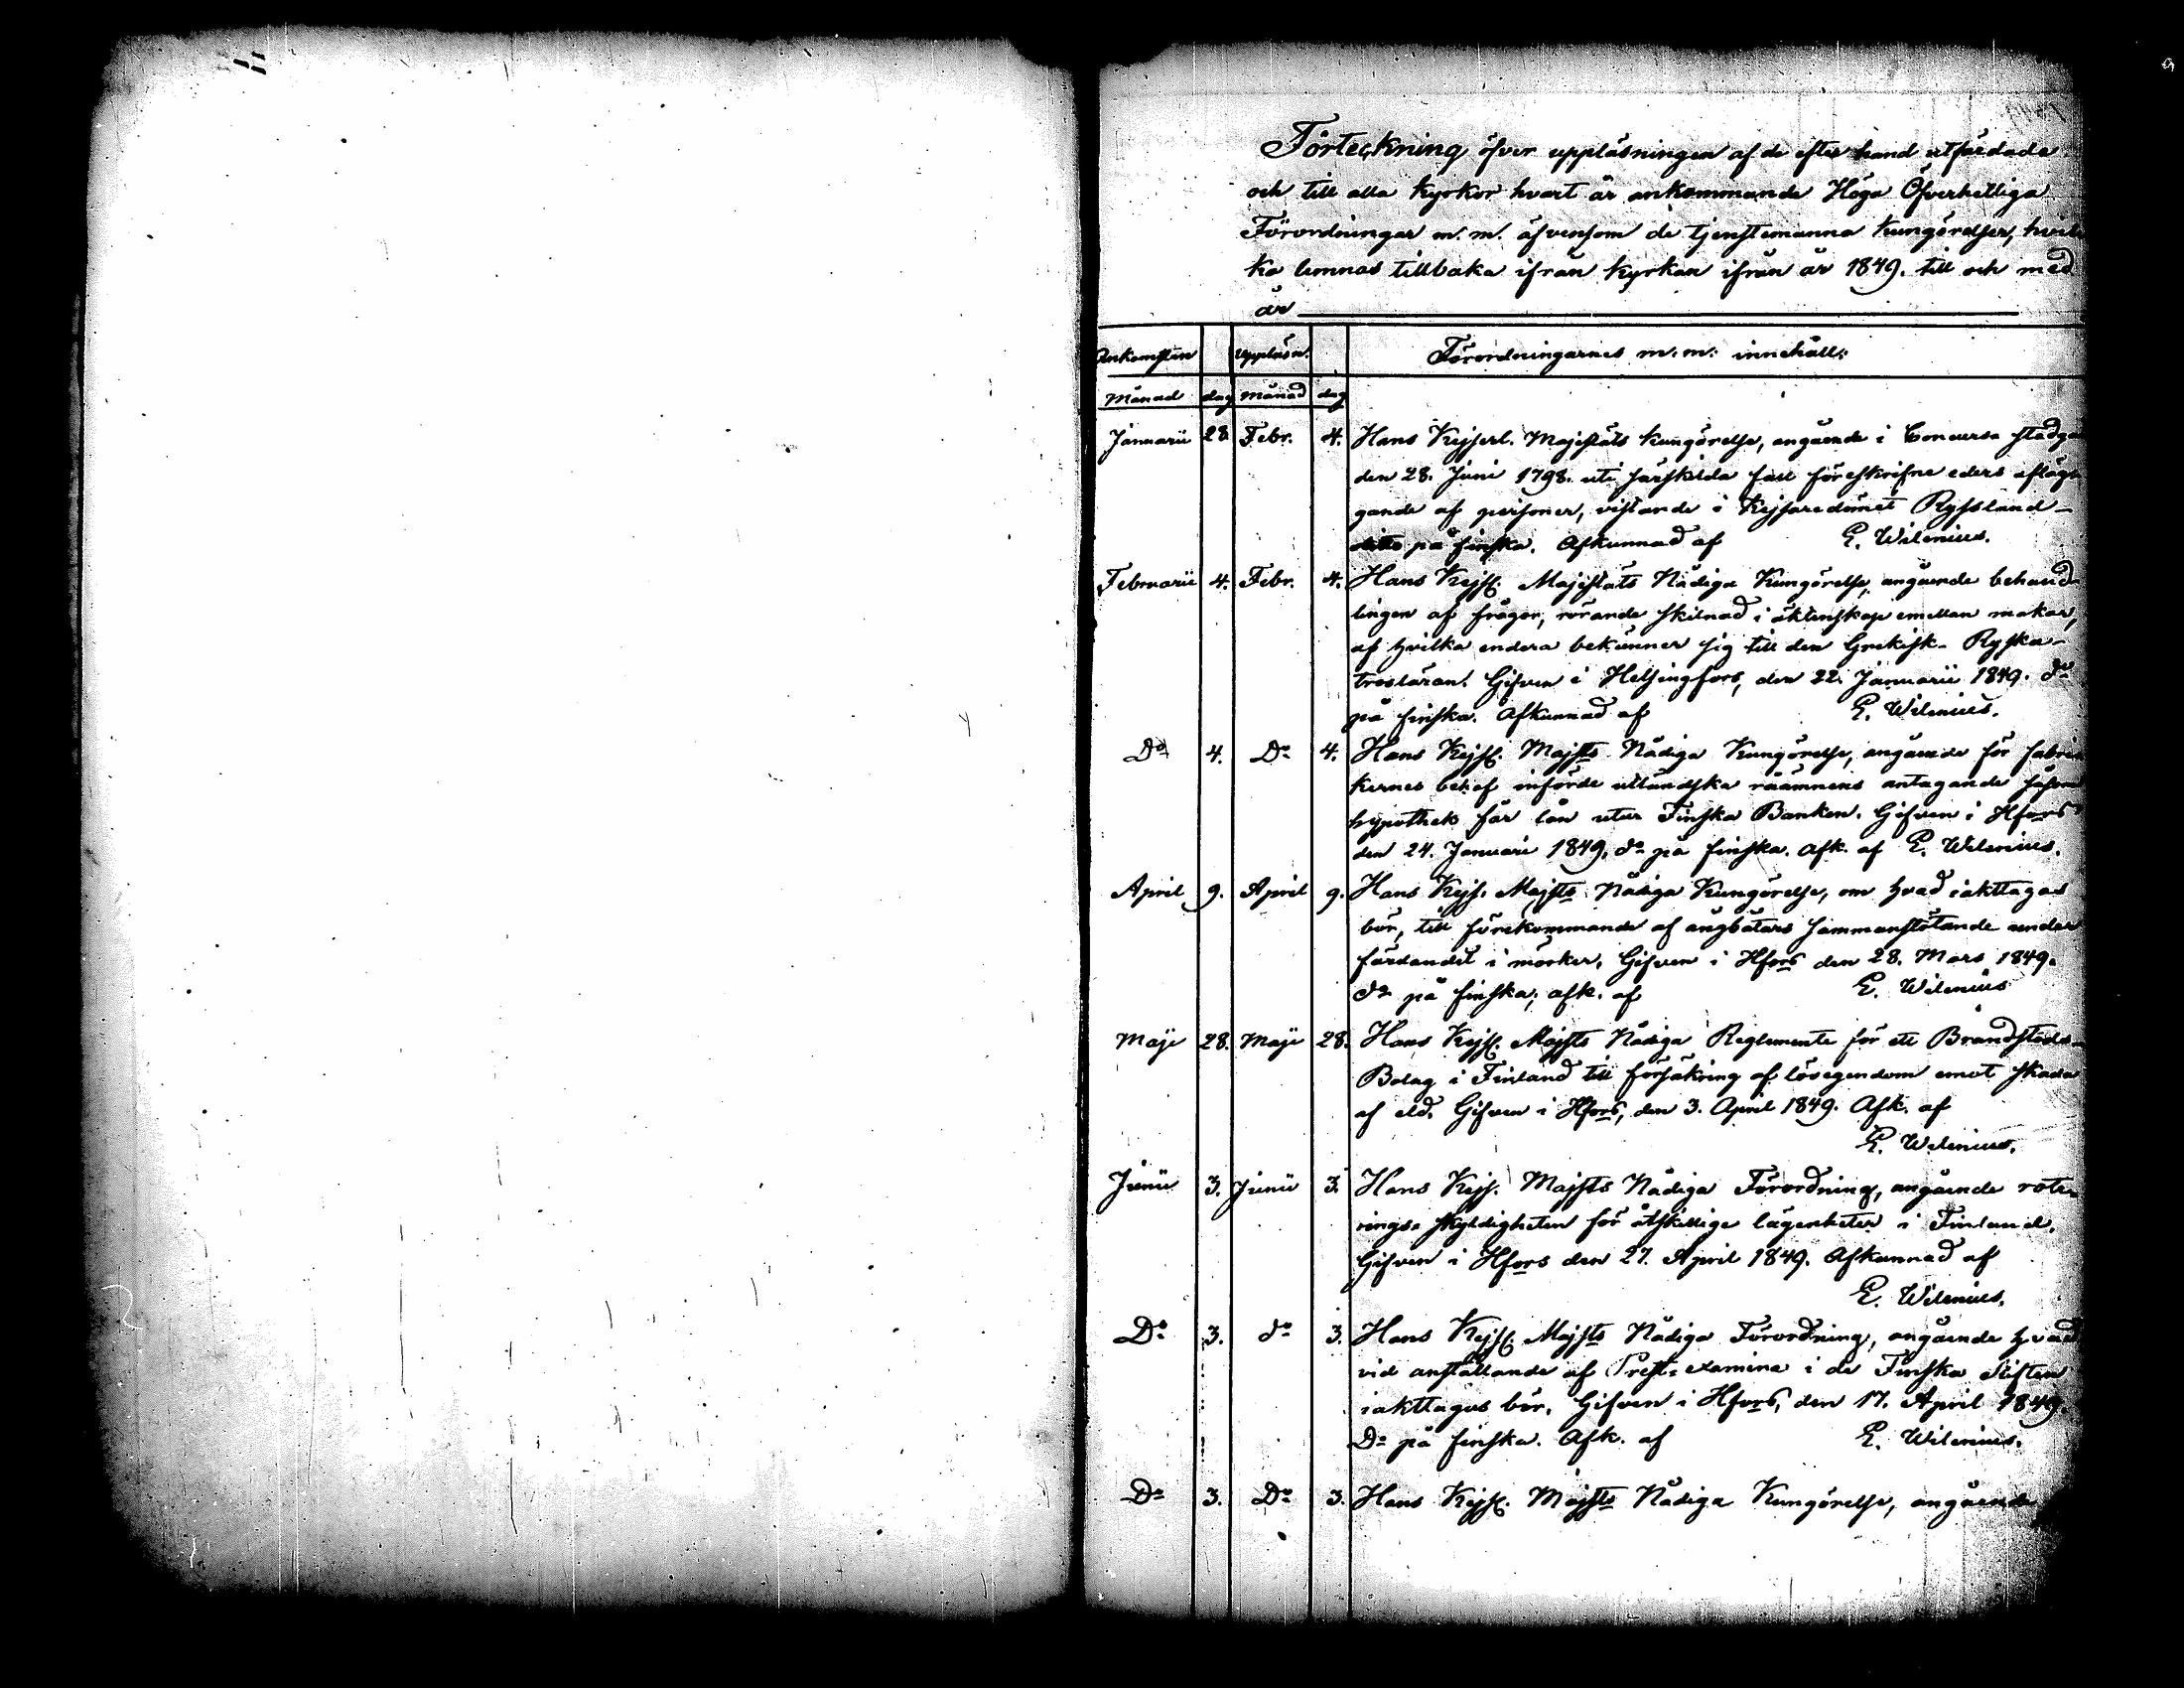 Förteckning öfver uppläsningen af de efter hand utfärdade
och till alla kyrkor hvart år ankommande Höga Öfverhetliga
Förordningar m. m. äfvensom de tjenstemanna kungörelser, hvil-
ka lemnas tillbaka ifrån kyrkan ifrån år 1849. till och med
år
Ankomsten Uppläsn. Förordningarnes m. m. innehåll:
Månad dag månad dag
Januarii 28. Febr. 4. Hans Kejserl. Majestäts kungörelse, angående i Concurs stadgan
den 28. Juni 1798. uti särskilda fall föreskrifne eders afläg-
gande af personer, vistande i Kejsaredömet Ryssland
ditto på finska. Afkunnad af E. Wilenius.
Februarii 4. Febr. 4. Hans Kejs. Majestäts Nådiga Kungörelse, angående behand-
lingen af frågor, rörande skilnad i äktenskap emellan makar,
af hvilka endera bekänner sig till den Grekisk-Ryska-
trosläran. Gifven i Helsingfors, den 22. Januarii 1849. do
på finska. Afkunnad af E. Wilenius.
Do 4. Do 4. Hans Kejs. Majsts Nådiga Kungörelse, angående för fabri-
kernes behof införde utländska råämnens antagande såsom
hypothek för lån utur Finska Banken. Gifven i Hfors
den 24. Januari 1849, do på finska. Afk. af E. Wilenius.
April 9. April 9. Hans Kejs. Majsts Nådiga Kungörelse, om hvad iakttagas
bör, till förekommande af ångbåtars sammanstötande under
färdandet i mörker. Gifven i Hfors den 28. Mars 1849.
do på finska, afk. af E. Wilenius
Maji 28. Maji 28. Hans Kejs. Majsts Nådiga Reglemente för ett Brandstods-
Bolag i Finland till försäkring af lösegendom emot skada
af eld. Gifven i Hfors, den 3. April 1849. Afk. af
E. Wilenius.
Junii 3. Junii 3. Hans Kejs. Majsts Nådiga Förordning, angående rote-
rings-skyldigheten för åtskillige lägenheter i Finland.
Gifven i Hfors den 27. April 1849. Afkunnad af
E. Wilenius.
Do 3. do 3. Hans Kejs. Majsts Nådiga Förordning, angående hvad
vid anställande af Prest-examina i de Finska Stiften
iakttagas bör. Gifven i Hfors, den 17. April 1849.
Do på finska. Afk. af E. Wilenius.
Do 3. Do 3. Hans Kejs. Majsts Nådiga Kungörelse, angående